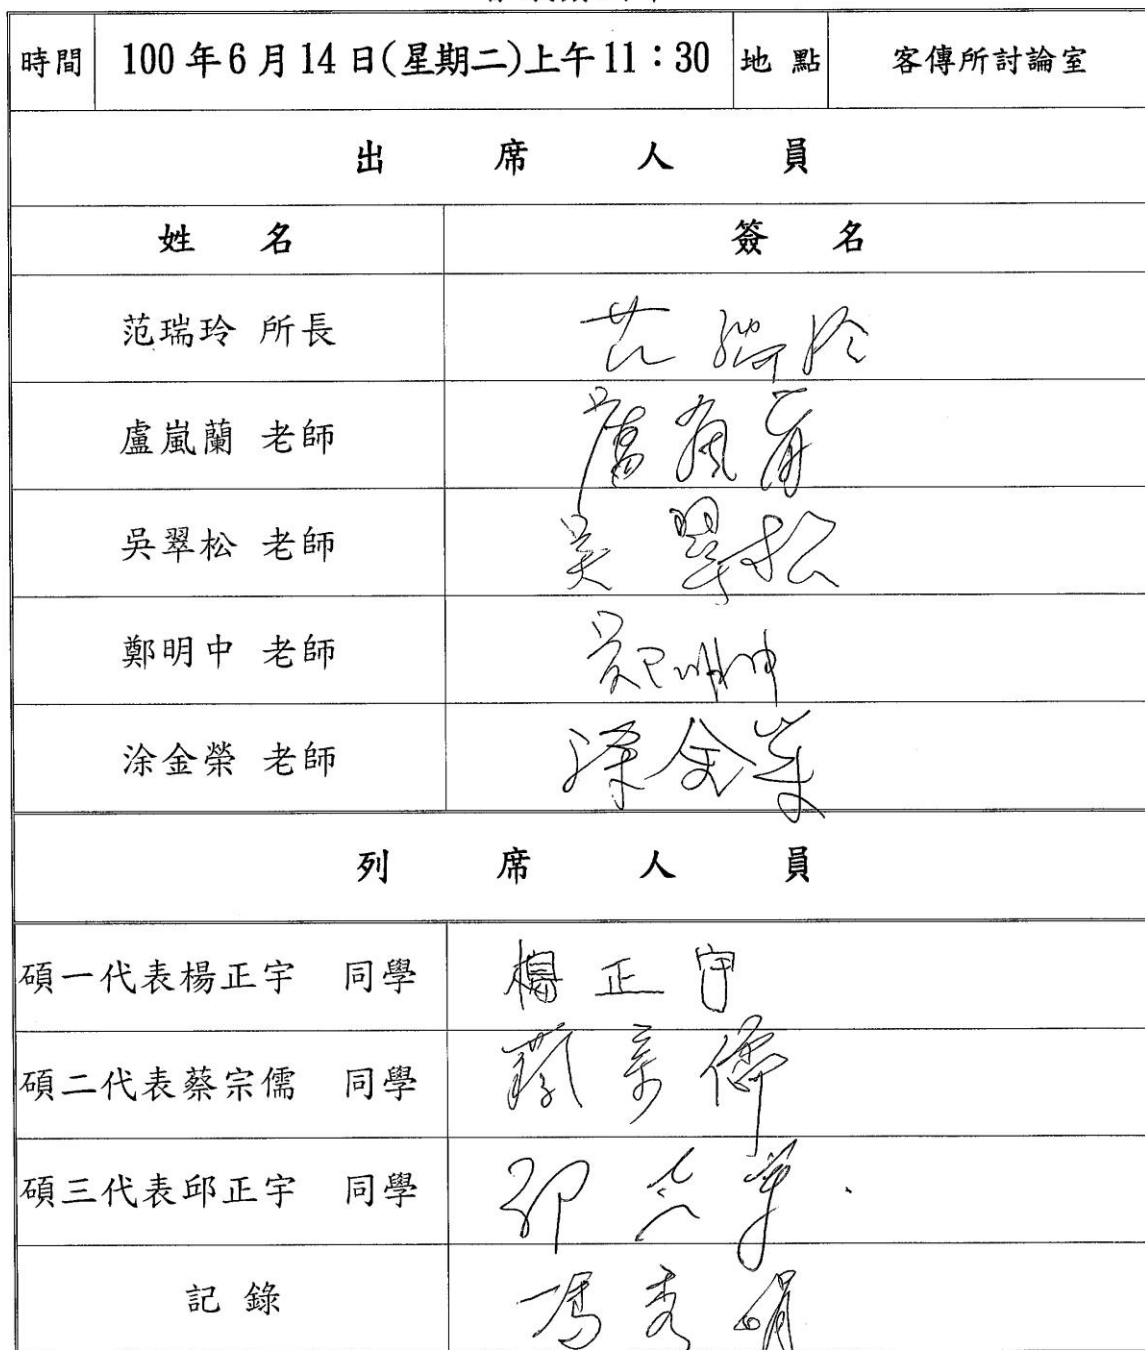 時間 100年6月14日(星期二)上午11:30 地點 客傳所討論室
出席人員
姓名 簽名
范瑞玲 所長 范瑞玲
盧嵐蘭 老師 盧嵐蘭
吳翠松 老師 吳翠松
鄭明中 老師 鄭明中
涂金榮 老師 涂金榮
列席人員
碩一代表楊正宇 同學 楊正宇
碩二代表蔡宗儒 同學 蔡宗儒
碩三代表邱正宇 同學 邱
記錄 馮秀娟